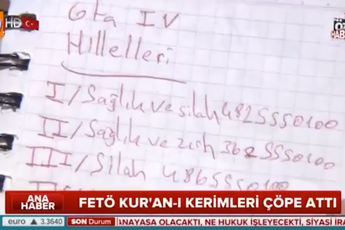 HD
ÖZ
HABER
Gta IV
Hilleleri
I/Sağlık ve silah 4825550100
II/Sağlık ve zırh 3625550100
III/Silah 4865550100
ANA
HABER
FETÖ KUR'AN-I KERİMLERİ ÇÖPE ATTI
euro 3.3640 SON Durum ANAYASA OLACAKTI, NE HUKUK İŞLEYECEKTİ, SİYASİ